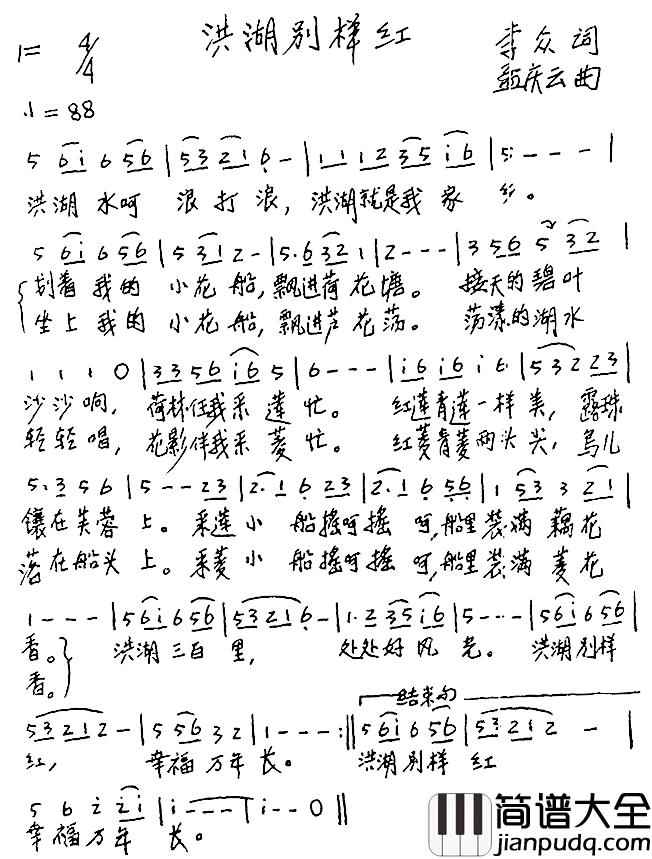 洪湖别样红
1= 4/4
李众 词
庆云 曲
♩=88
5 6i 6 56 | 53 21 6 - | 1 1 1 2 35 i6 | 5 - - - |
洪湖 水呵 浪打浪，洪湖就是我家乡。
5 6i 6 56 | 5 31 2 - | 5·6 32 1 | 2 - - - | 3 56 5 32 |
划着我的 小花船，飘进荷花塘。 接天的碧叶
坐上我的 小花船，飘进芦花荡。 荡漾的湖水
1 1 1 0 | 33 56 i6 5 | 6 - - - | i6 i6 i 6 | 5 32 23 |
沙沙响， 荷林任我采莲忙。 红莲青莲一样美，露珠
轻轻唱， 花影伴我采菱忙。 红菱青菱两头尖，鸟儿
5·3 5 6 | 5 - - 23 | 2·1 6 23 | 2·1 6 56 | 1 53 3 21 |
镶在芙蓉上。采莲小船摇呵摇呵，船里装满藕花
落在船头上。采菱小船摇呵摇呵，船里装满菱花
1 - - - | 56i 6 56 | 53 21 6 - | 1·2 35 i6 | 5 - - - | 56i 6 56 |
香。 洪湖三百里， 处处好风光。 洪湖别样
香。
结束句
53 21 2 - | 5 56 3 2 | 1 - - - :‖ 56i 6 56 | 53 21 2 - |
红， 幸福万年长。 洪湖别样红
5 6 2 2i | i - - - | i - - 0 ‖
幸福万年长。
简谱大全
jianpudq.com